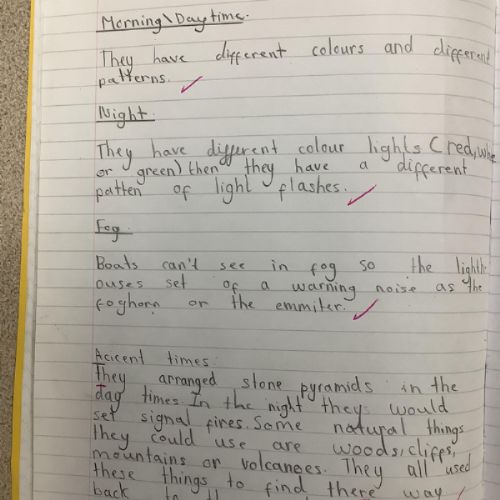 Morning\Daytime.
They have different colours and different
patterns.
Night.
They have different colour lights (red, white
or green) then they have a different
patten of light flashes.
Fog.
Boats can't see in fog so the lighth-
ouses set of a warning noise as the
foghorn or the emmiter.
Acicent times.
They arranged stone pyramids in the
day times. In the night they would
set signal fires. Some natural things
they could use are woods, cliffs,
mountains or volcanoes. They all used
these things to find there way
back to